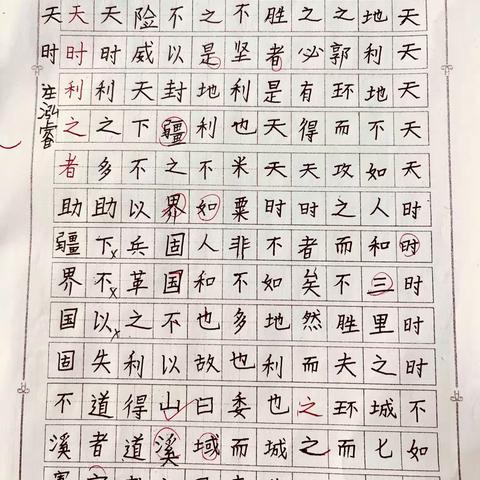 天天天天天时时时时时不如
地利地不如人和三里之城七
之郭环而攻之而不胜夫环而
之必有得天时者矣然而之之
胜者是天天时不如地利也城
不坚利也米粟非不多也委而
之是地利不如人和也故曰域
不以封疆之界固国不以山溪
险威天下不以兵革之利得道
天时利之多助下不以失道者
天时利之者助疆界国固不溪
天时
庄泓睿